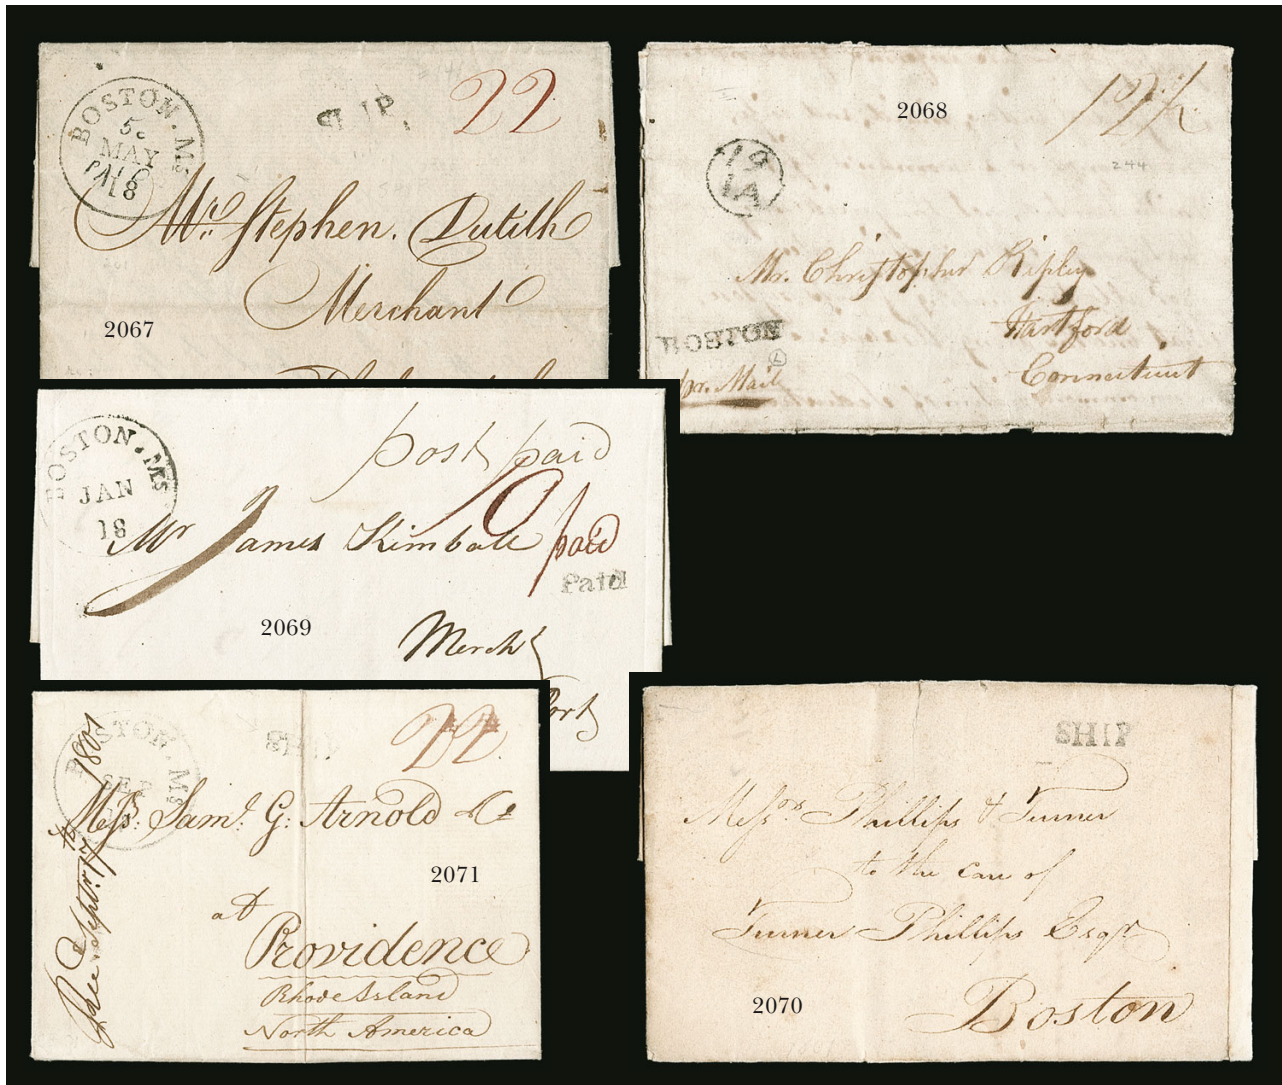 BOSTON. Ms
5
MAY
PAID
18
SHIP
22
Mr. Stephen. Dutilh
Merchant
2067
2068
12½
244
19
IA
Mr. Christopher Ripley
Hartford
Connecticut
BOSTON
pr. Mail
BOSTON. Ms
JAN
18
post paid
10 paid
Mr James Kimball
Paid
2069
Mercht
Port
BOSTON. Ms
SEP
SHIP
22
Messrs. Saml. G: Arnold & Co
2071
at
Providence
Rhode Island
North America
Rec Septr. 17th 1801
SHIP
Messrs Phillips & Turner
to the care of
Turner Phillips Esqr
2070
Boston